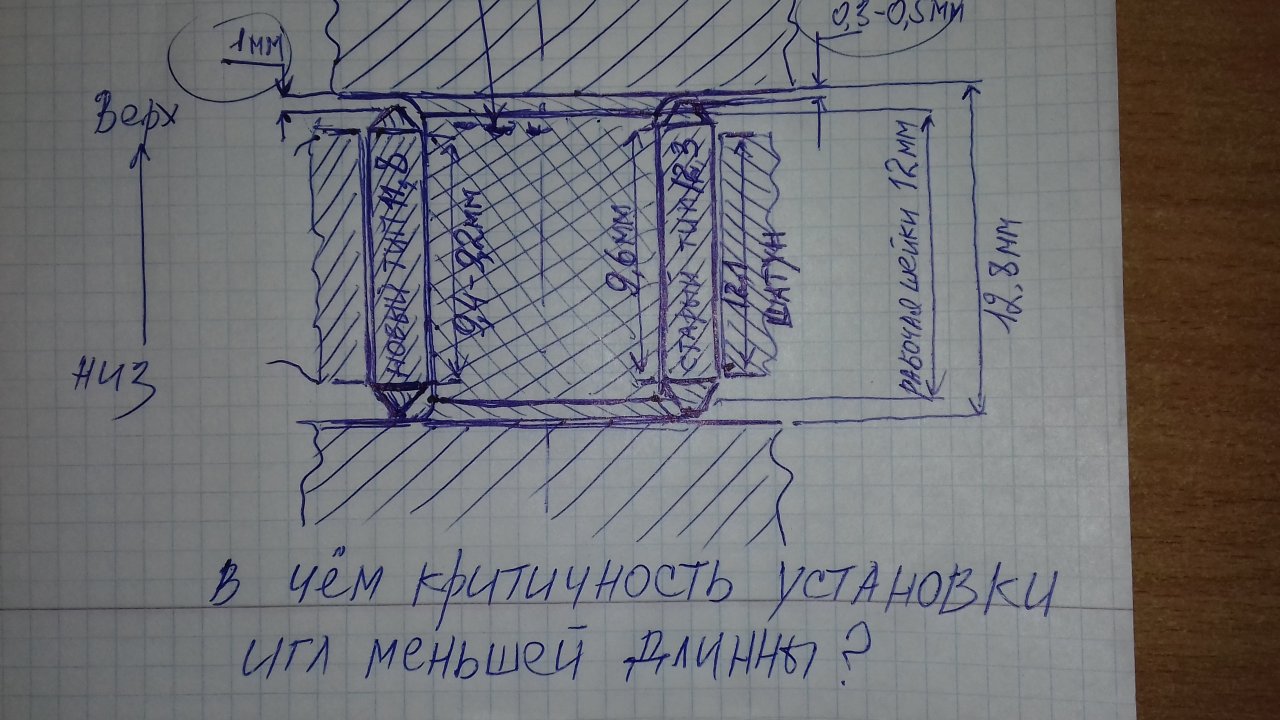 1мм
0,3-0,5мм
Верх
низ
новый тип 11,8
9,4-9,2мм
9,6мм
старый тип 12,3
12,1
шатун
рабочая шейки 12мм
12,8мм
в чём критичность установки
игл меньшей длинны?